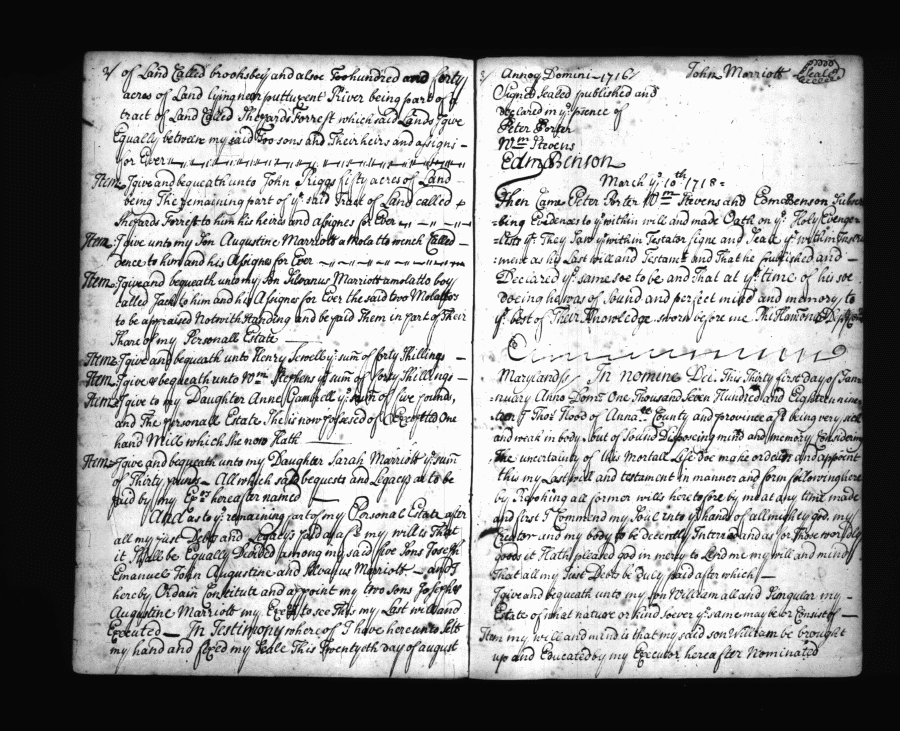 2/ of Land Called brooksbey and alsoe Too hundred and forty
acres of Land lying near puttuxent River being part of ye
tract of Land Called Shepards Forrest which said Lands I give
Equally between my said Too sons and Their heirs and asigns
for Ever
Item I give and bequeath unto John Riggs fifty acres of Land
being The remaining part of ye said Tract of Land called
Shepards Forrest to him his heirs and asignes for Ever
Item I give unto my Son Augustine Marriott a Molatto wench Called
to him and his Asignes for Ever
Item I give and bequeath unto my Son Silvanus Marriott a molatto boy
called Jack to him and his Asignes for Ever the said two Molattos
to be appraised Notwithstanding and be paid Them in part of Their
Share of my Personall Estate
Item I give and bequeath unto Henry Sewell ye sum of forty Shillings
Item I give & bequeath unto Wm Stephens ye sum of Forty Shillings
Item I give to my Daughter Anne ye sum of five pounds,
and The personall Estate She is now possesed of Excepted One
hand Mill which she now Hath
Item I give and bequeath unto my Daughter Sarah Marriott ye sum
of Thirty pounds All which said bequests and Legacys are to be
paid by my Exrs hereafter named
And as to ye remaining part of my Personal Estate after
all my just Debts and Legacys paid as afsd my will is That
it Shall be Equally Devided among my said five Sons Joseph
Emanuel John Augustine and Silvanus Marriott and I
hereby Ordain Constitute and appoint my two sons Joseph &
Augustine Marriott my Exrs to see This my Last will and
Executed In Testimony whereof I have hereunto Sett
my hand and fixed my Seale This Twentyeth day of august
3/ Annoq Domini 1716/ John Marriott Seale
Signed sealed published and
declared in ye presence of
Peter Porter
Wm Stevens
Edm Benson
March ye 10th 1718
Then Came Peter Porter Wm Stevens and Edm Benson Subscri
bing Evidences to ye within will and made Oath on ye Holy Evenge
-lists yt They Saw ye within Testator Signe and Seale ye within Instru
ment as his Last will and Testamt and That he published and
Declared ye same soe to be and That at ye time of his soe
doeing he was of Sound and perfect mind and memory to
ye best of Their Knowledge sworn before me
Maryland ss In Nomine Dei This Thirty first day of Jan
nuary Anno Domi One Thousand Seven Hundred and Eighteen nine
-teen I Thos Hood of Anna Ll County and province afsd being very sick
and weak in body but of Sound Desposeing mind and memory Considering
the uncertainty of this Mortall Life doe make ordain and appoint
this my Last will and testament in manner and form following here
by Revoking all former wills heretofore by me at any time made
and first I Commend my Soul into ye hands of allmighty god, my
Creator and my body to be decently Interred and as for Those worldly
goods it Hath pleased god in mercy to Lend me my will and mind
That all my Just Debts be duly paid after which
I give and bequeath unto my son William all and Singular my
Estate of what nature or kind soever ye same may be or Consist of
Item my will and mind is that my said son William be brought
up and Educated by my Executor hereafter Nominated